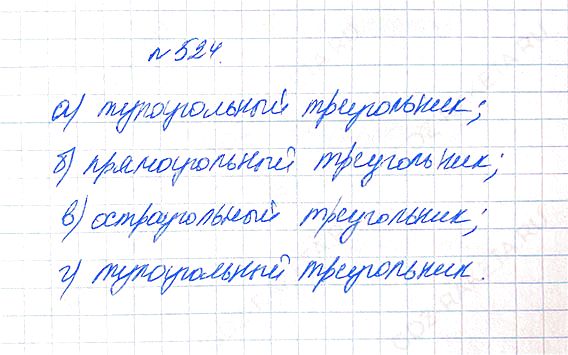 № 524.
а) тупоугольный треугольник;
б) прямоугольный треугольник;
в) остроугольный треугольник;
г) тупоугольный треугольник.